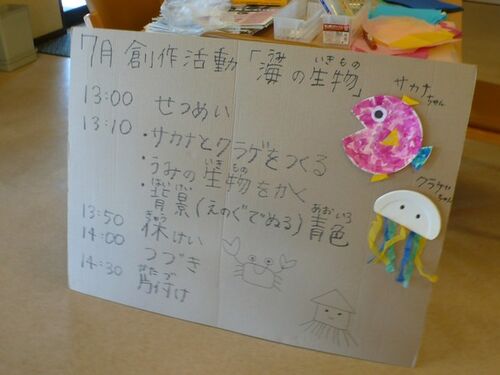 7月 創作活動「海の生物」
いきもの
サカナちゃん
13:00 せつめい
13:10 ・サカナとクラゲをつくる
・うみの生物をかく
いきもの
クラゲちゃん
はいけい
・背景(えのぐでぬる)青色
あおいろ
13:50 休けい
きゅう
14:00 つづき
14:30 片付け
かたづ